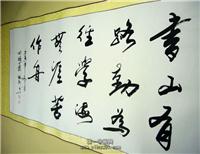 書山有
路勤為
径學海
無涯苦
作舟